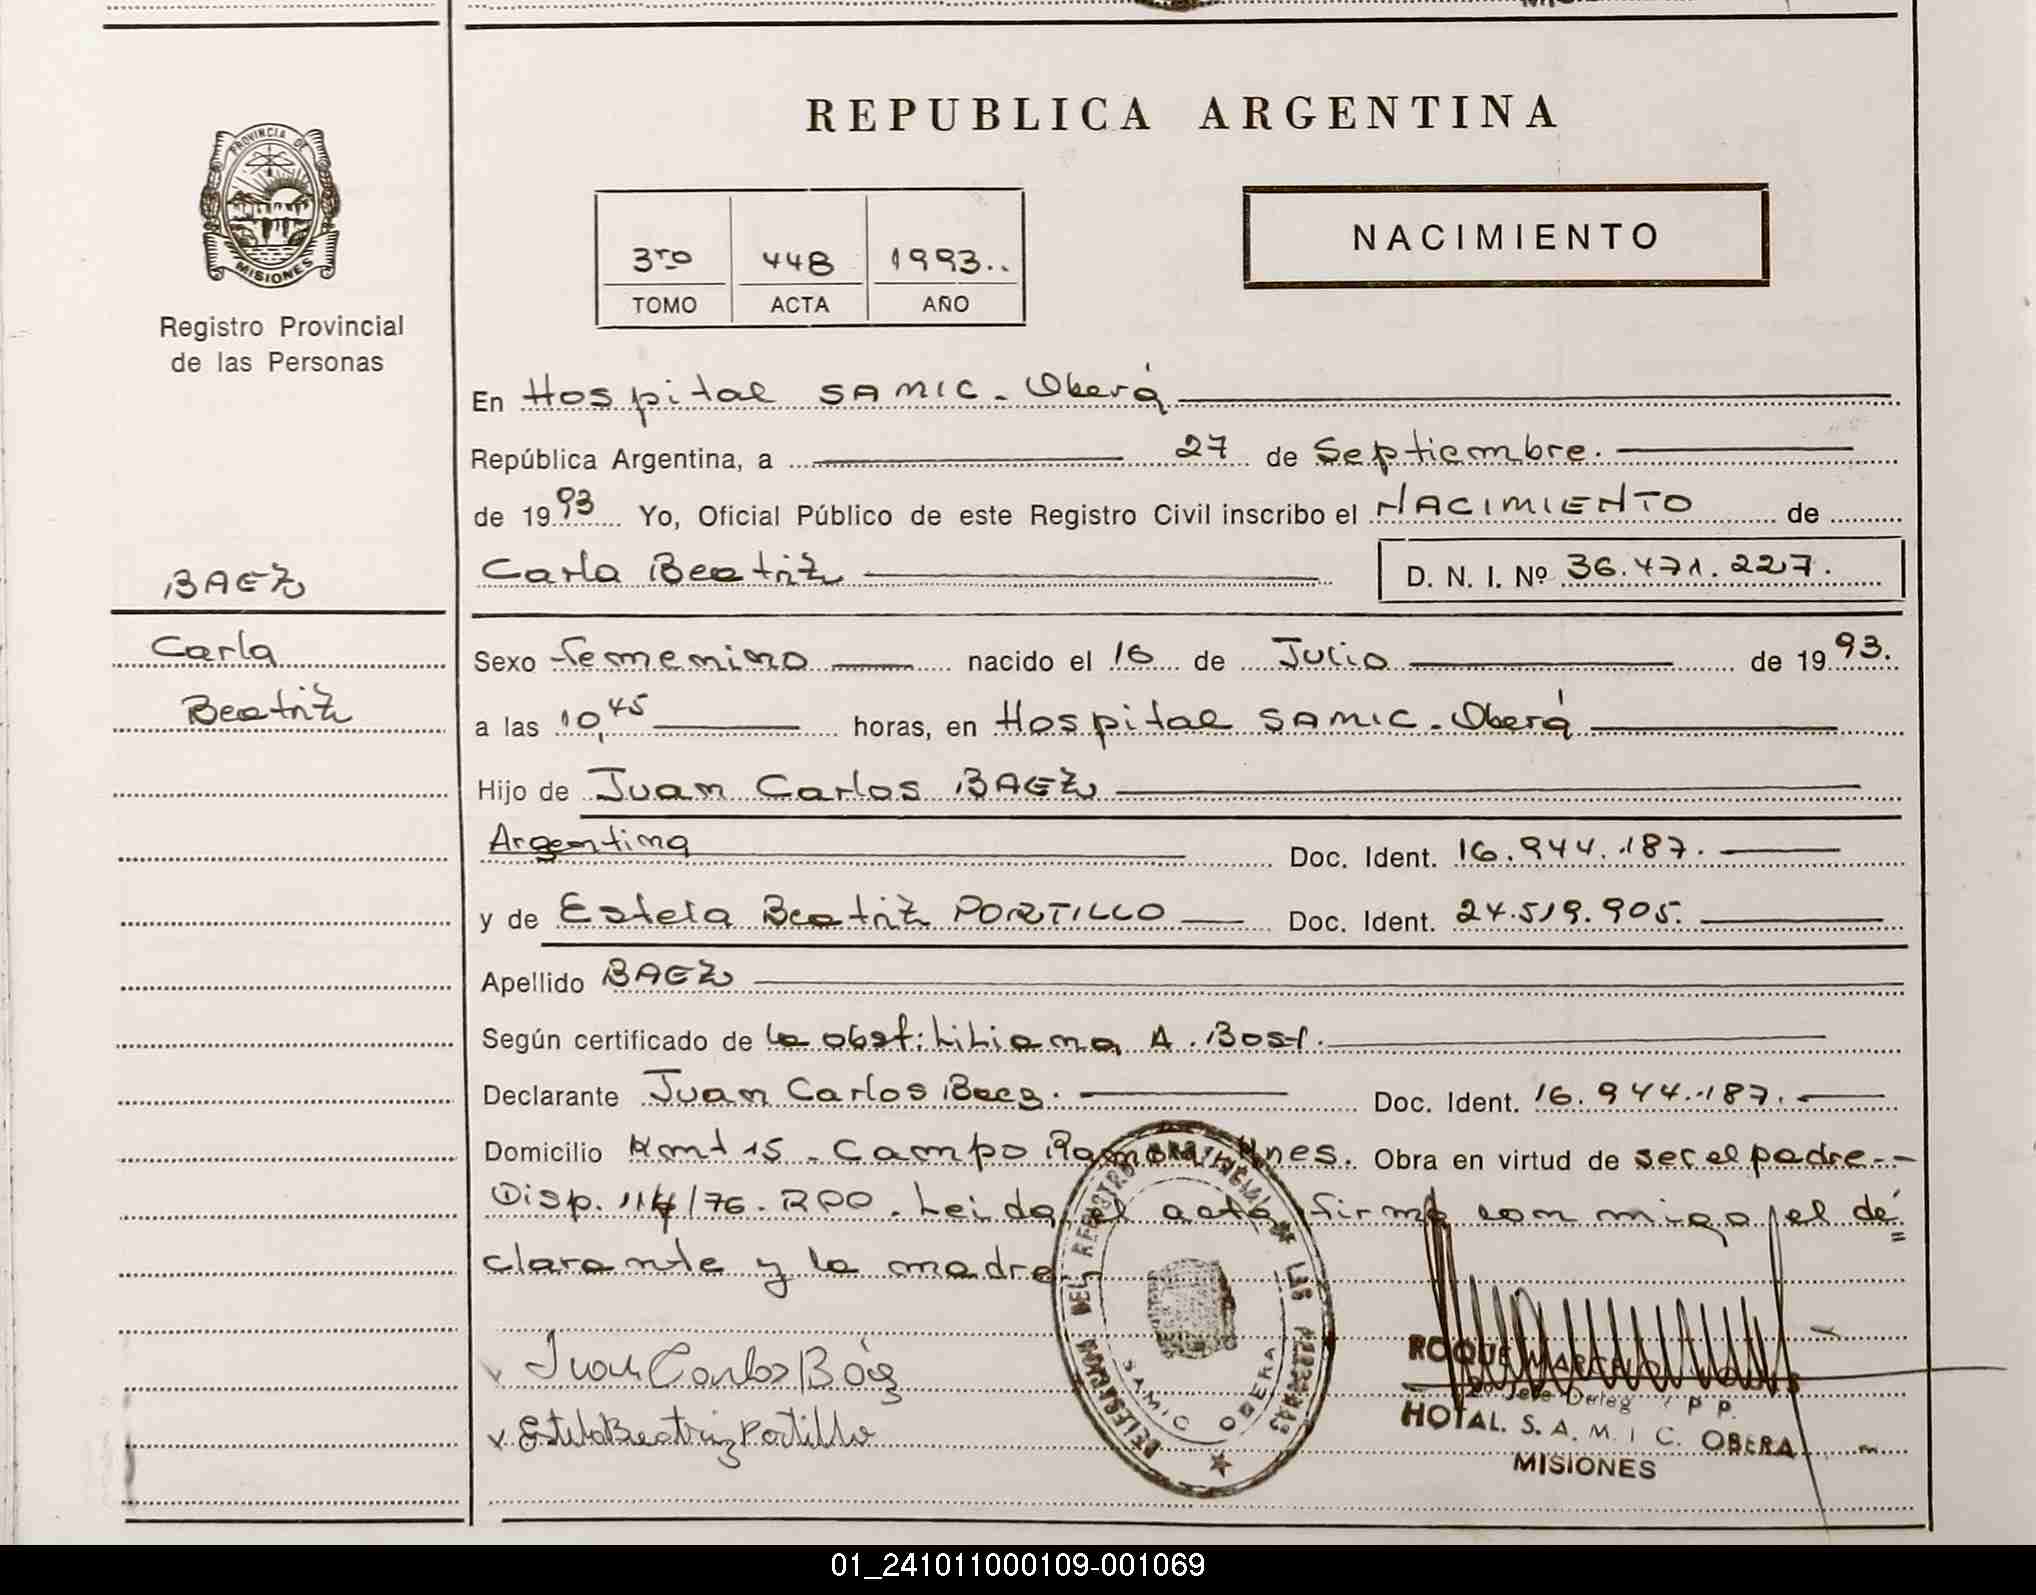 REPUBLICA ARGENTINA
PROVINCIA DE
MISIONES
Registro Provincial
de las Personas
3ro 448 1993..
TOMO ACTA AÑO
NACIMIENTO
En Hospital SAMIC - Oberá
República Argentina, a 27 de Septiembre.
de 1993 Yo, Oficial Público de este Registro Civil inscribo el NACIMIENTO de
Carla Beatriz D. N. I. Nº 36.471.227.
BAEZ
Carla
Beatriz
Sexo femenino nacido el 16 de Julio de 1993.
a las 10,45 horas, en Hospital SAMIC - Oberá
Hijo de Juan Carlos BAEZ
Argentina Doc. Ident. 16.944.187.
y de Estela Beatriz PORTILLO Doc. Ident. 24.519.905.
Apellido BAEZ
Según certificado de la obst: Liliana A. Bost.
Declarante Juan Carlos Baez. Doc. Ident. 16.944.187.
Domicilio Kmt 15 - Campo Ramón Mnes. Obra en virtud de ser el padre --
Disp. 114/76. RPP. Leida el acta firma con migo el de=
clarante y la madre
Juan Carlos Báez
Estela Beatriz Portillo
DELEGACION DEL REGISTRO PROVINCIAL DE LAS PERSONAS
SAMIC OBERA
ROQUE MARCELO
2º Jefe Deleg. P P.
HOTAL. S. A. M. I C. OBERA
MISIONES
01_241011000109-001069